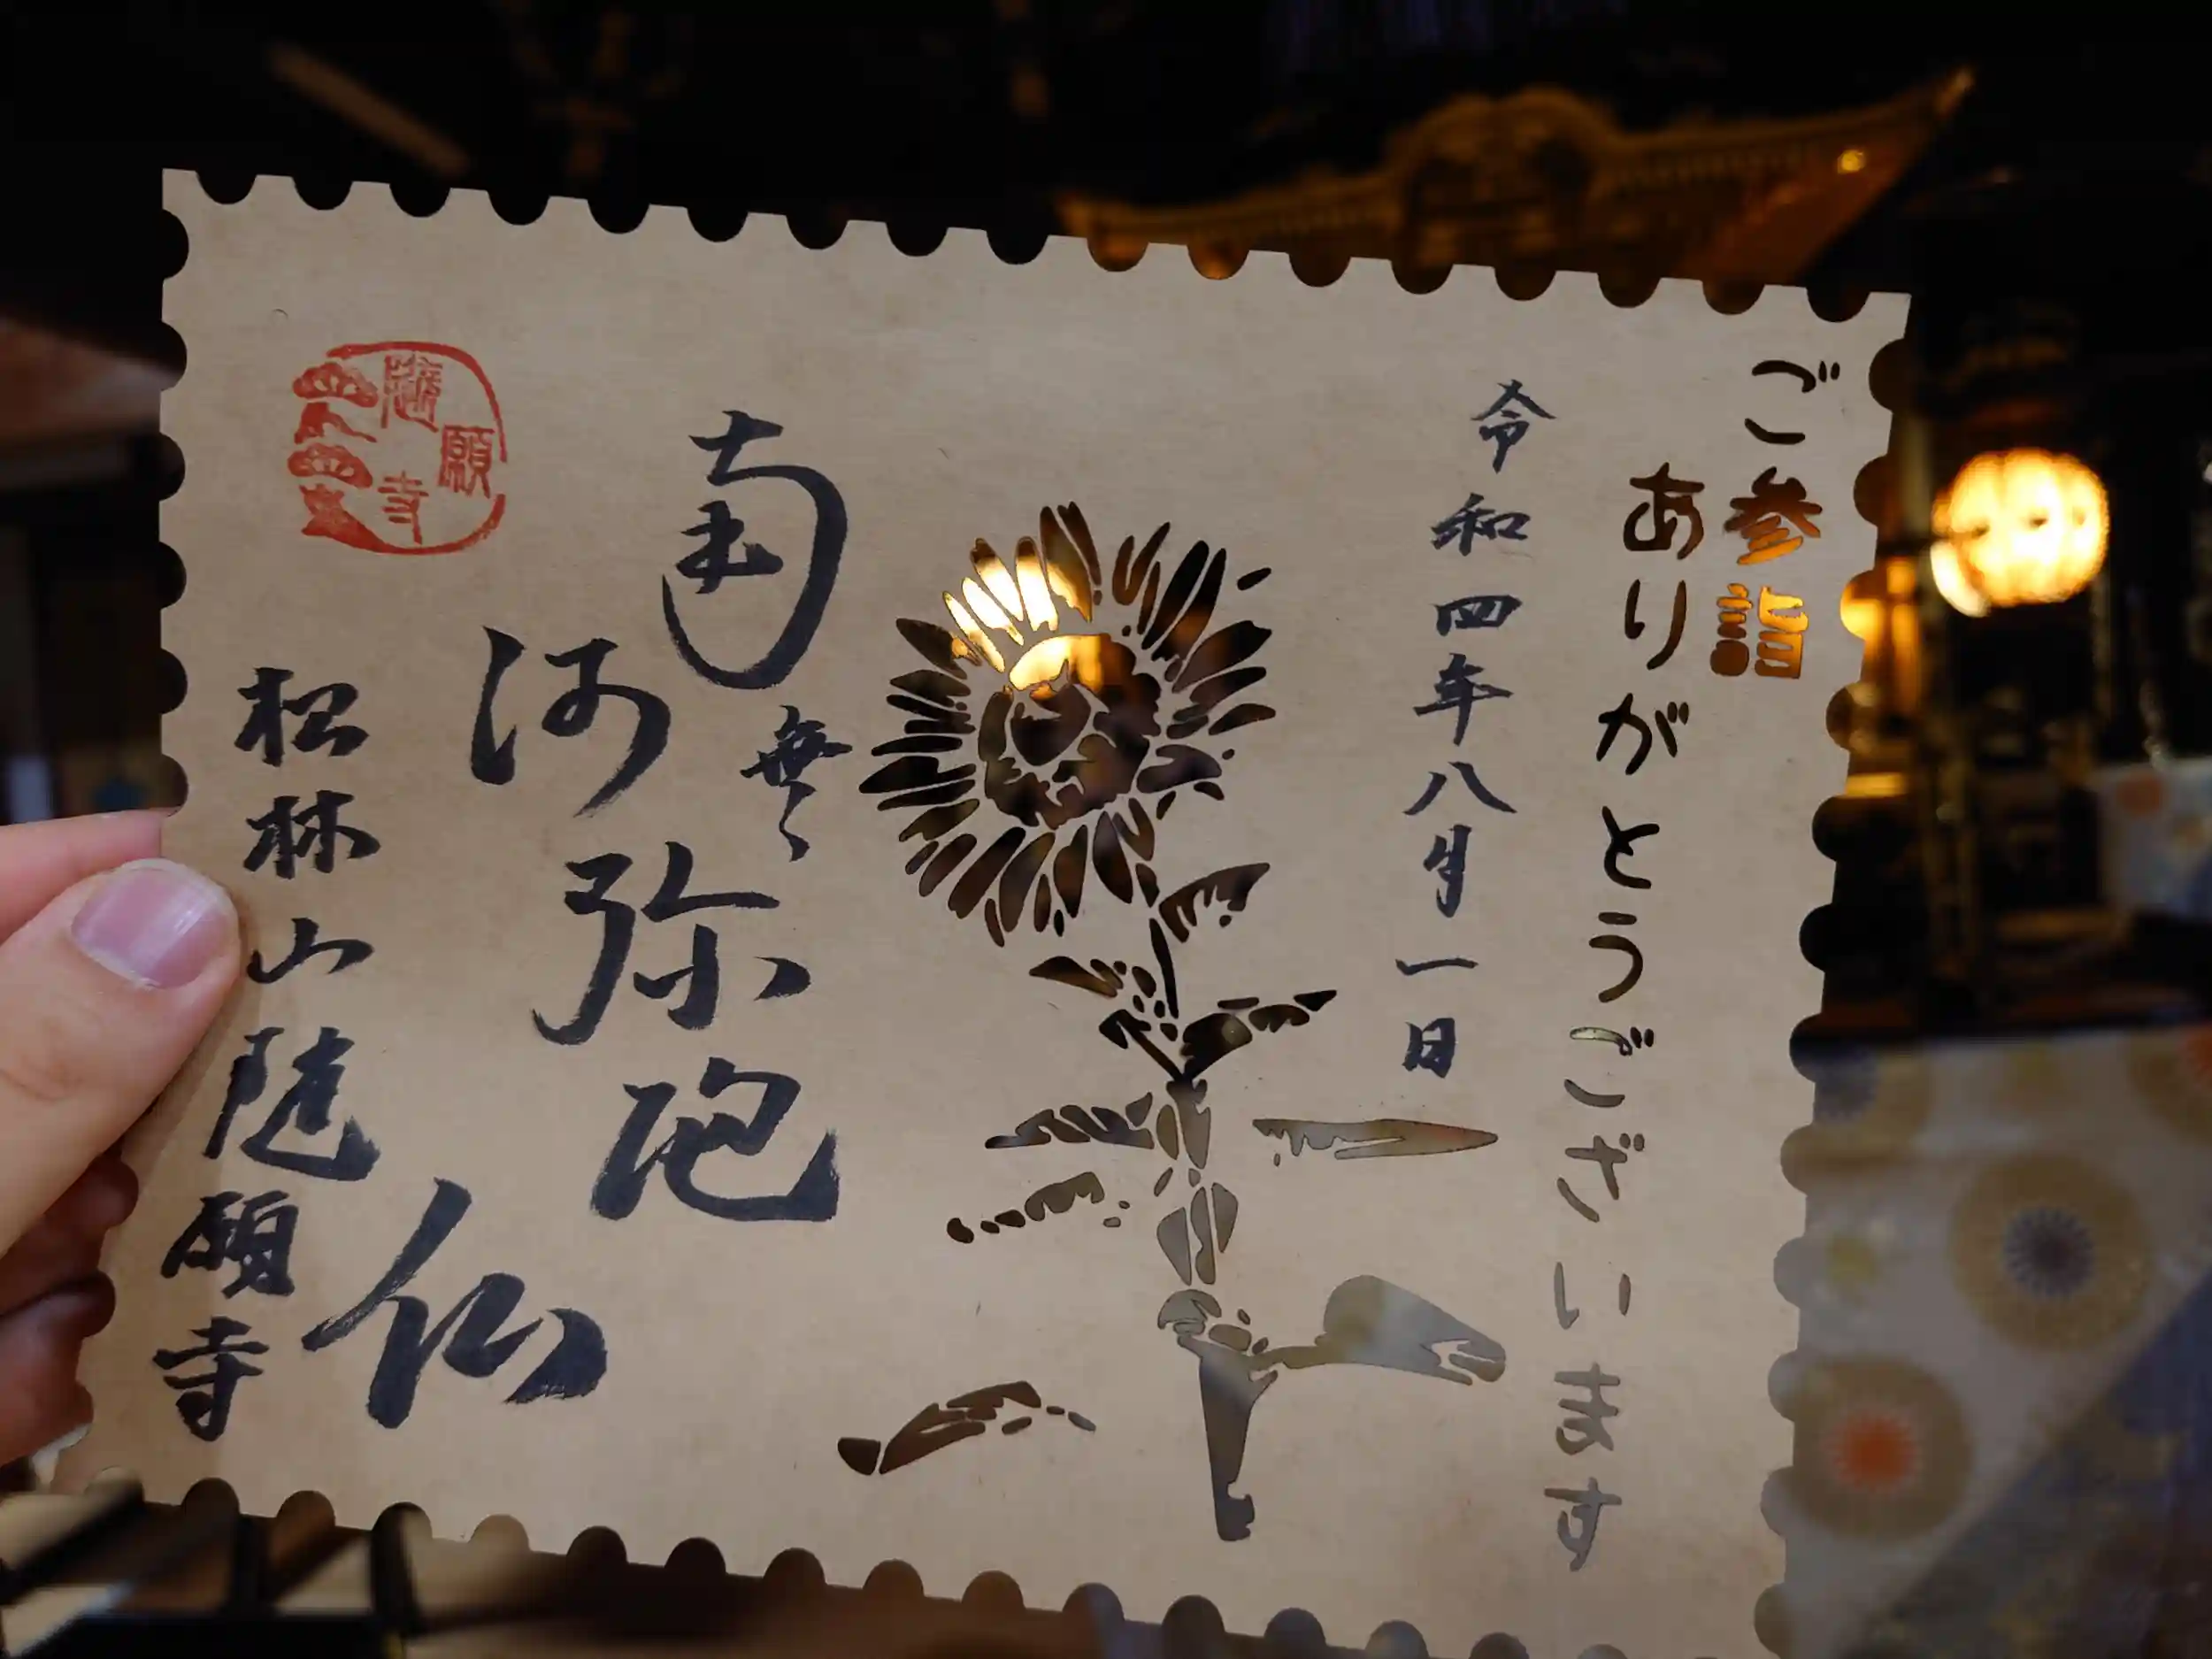 ご参詣
ありがとうございます
令和四年八月一日
南無
阿弥陀
仏
松林山随願寺
随願寺